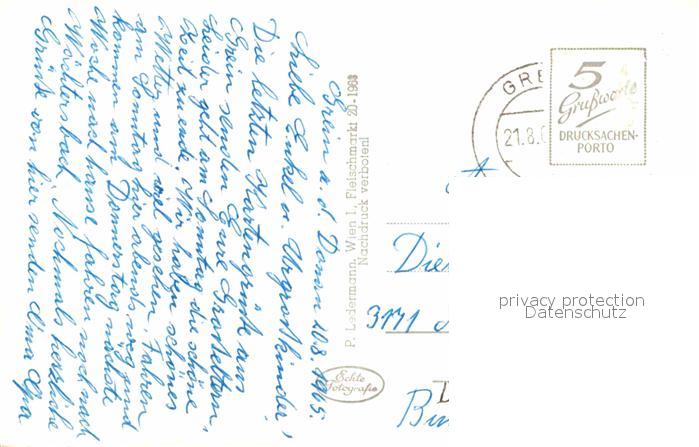 Grein a. d. Donau 20.8.1965.
Liebe Enkel u. Urgroßkinder!
Die letzten Kartengrüße aus
Grein senden Eure Großeltern,
Leider geht am Sonntag die schöne
Zeit zu ende. Wir haben schönes
Wetter und viel gesehen. Fahren
am Sonntag hier abends weg und
kommen am Donnerstag nächste
Woche nach hause fahren noch nach
Wächtersbach. Nochmals herzliche
Grüße von hier senden Oma Opa
P. Ledermann, Wien I., Fleischmarkt 20-1963
Nachdruck verboten!
Echte
Fotografie
GRE
21.8.
5
Grußworte
DRUCKSACHEN-
PORTO
3171
privacy protection
Datenschutz